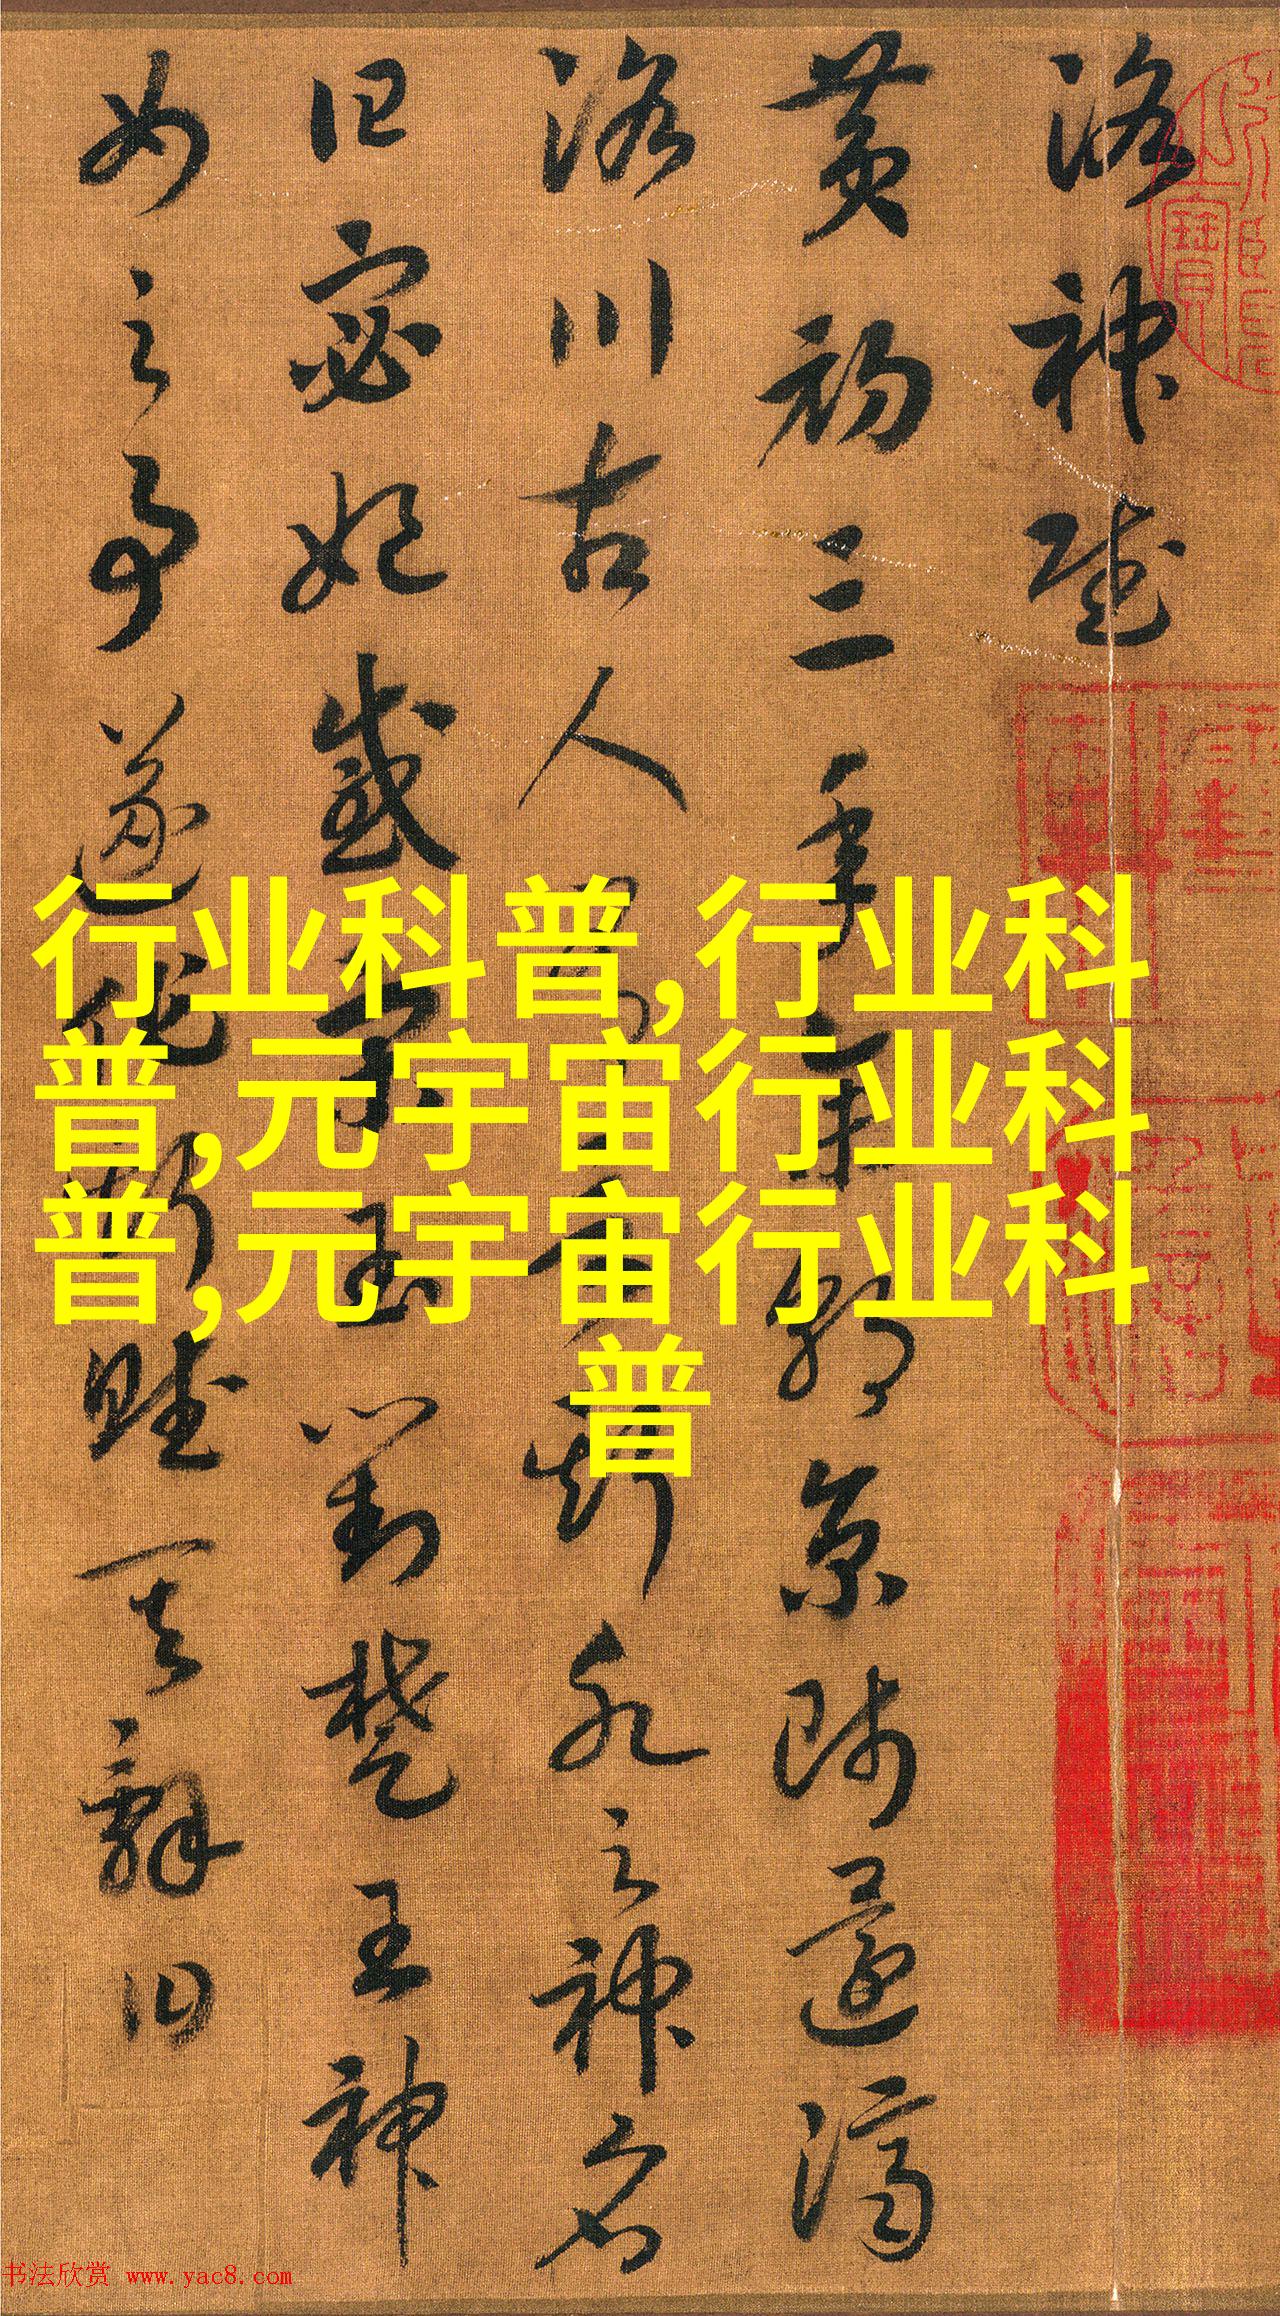 洛神赋
黄初三年余朝京师还济
洛川古人有言斯水之神名
曰宓妃感宋玉对楚王神
女之事遂作斯赋其辞曰
行业科普,行业科
普,元宇宙行业科
普,元宇宙行业科
普
书法欣赏 www.yac8.com